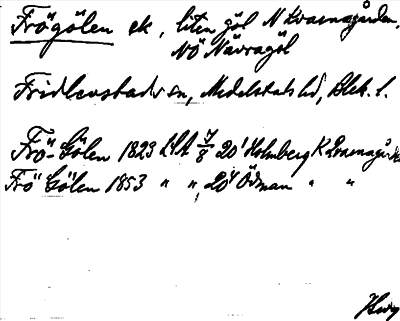 Frögölen ek, liten göl N Kvarnagården,
NÖ Nävragöl
Fridlevstads sn, Medelstads hd, Blek. l.
Frö-Gölen 1823 LSA 7/8 20' Holmberg K Kvarnagård
Frö Gölen 1853 " " 20' Ödman " "